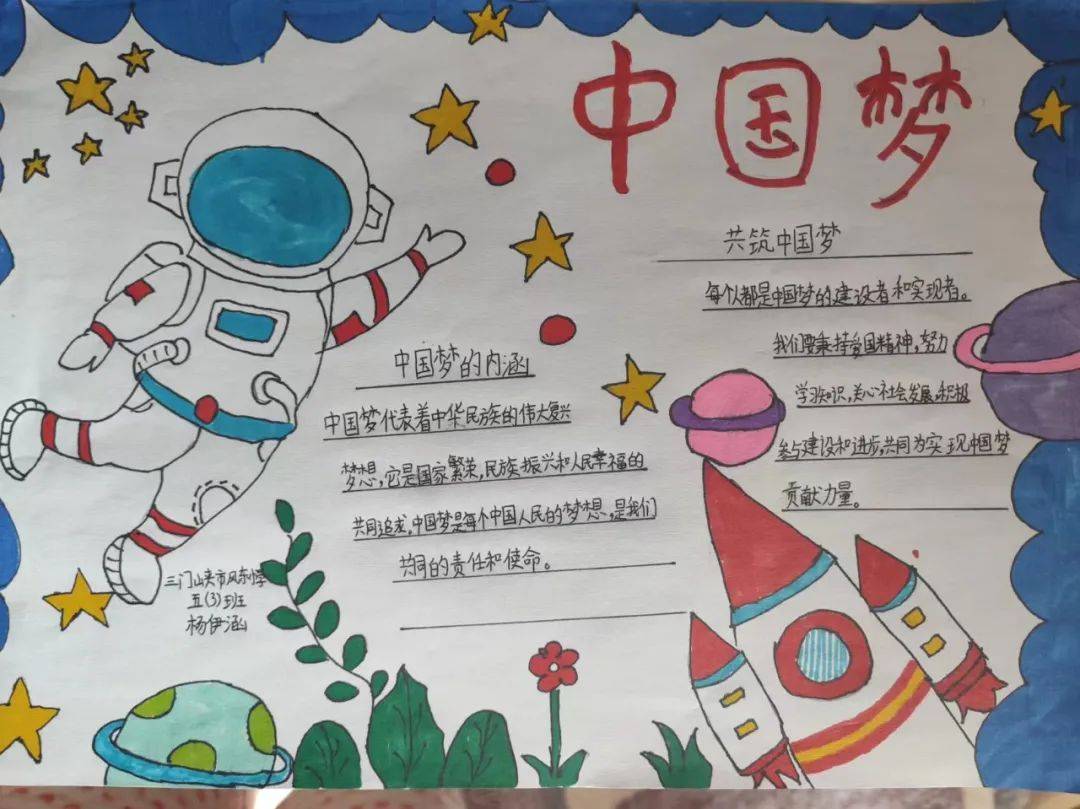 中国梦
共筑中国梦
每个人都是中国梦的建设者和实现者。
我们要秉持爱国精神,努力
学习知识,关心社会发展,积极
参与建设和进步,共同为实现中国梦
贡献力量。
中国梦的内涵
中国梦代表着中华民族的伟大复兴
梦想,它是国家繁荣,民族振兴和人民幸福的
共同追求,中国梦是每个中国人民的梦想,是我们
共同的责任和使命。
三门峡市风东小学
五(3)班
杨伊涵